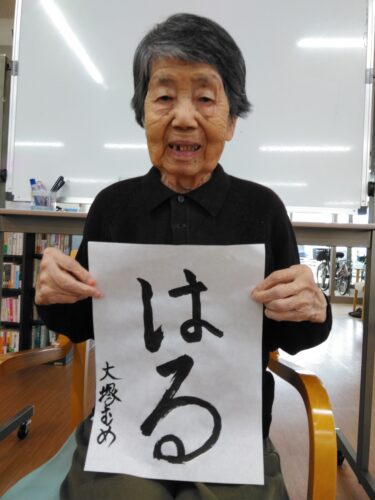 はる
大塚むめ